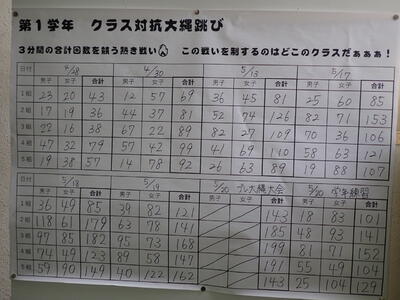 第1学年 クラス対抗大縄跳び
3分間の合計回数を競う熱き戦い この戦いを制するのはどこのクラスだぁぁぁ!
日付 4/28 4/30 5/13 5/17
男子 女子 合計 男子 女子 合計 男子 女子 合計 男子 女子 合計
1組 23 20 43 12 57 69 36 45 81 25 60 85
2組 17 19 36 44 37 81 52 74 126 82 71 153
3組 22 16 38 67 22 89 82 27 109 70 36 106
4組 47 32 79 57 42 99 41 69 110 58 63 121
5組 19 38 57 14 78 92 26 63 89 19 88 107
日付 5/18 5/19 5/20 プレ大縄大会 5/20 学年練習
男子 女子 合計 男子 女子 合計 男子 女子 合計 男子 女子 合計
1組 36 49 85 39 82 121 143 18 83 101
2組 118 61 179 63 78 141 185 48 93 141
3組 97 85 182 95 73 168 199 81 71 152
4組 74 49 123 89 58 147 197 55 49 104
5組 59 90 149 40 122 162 143 25 104 129